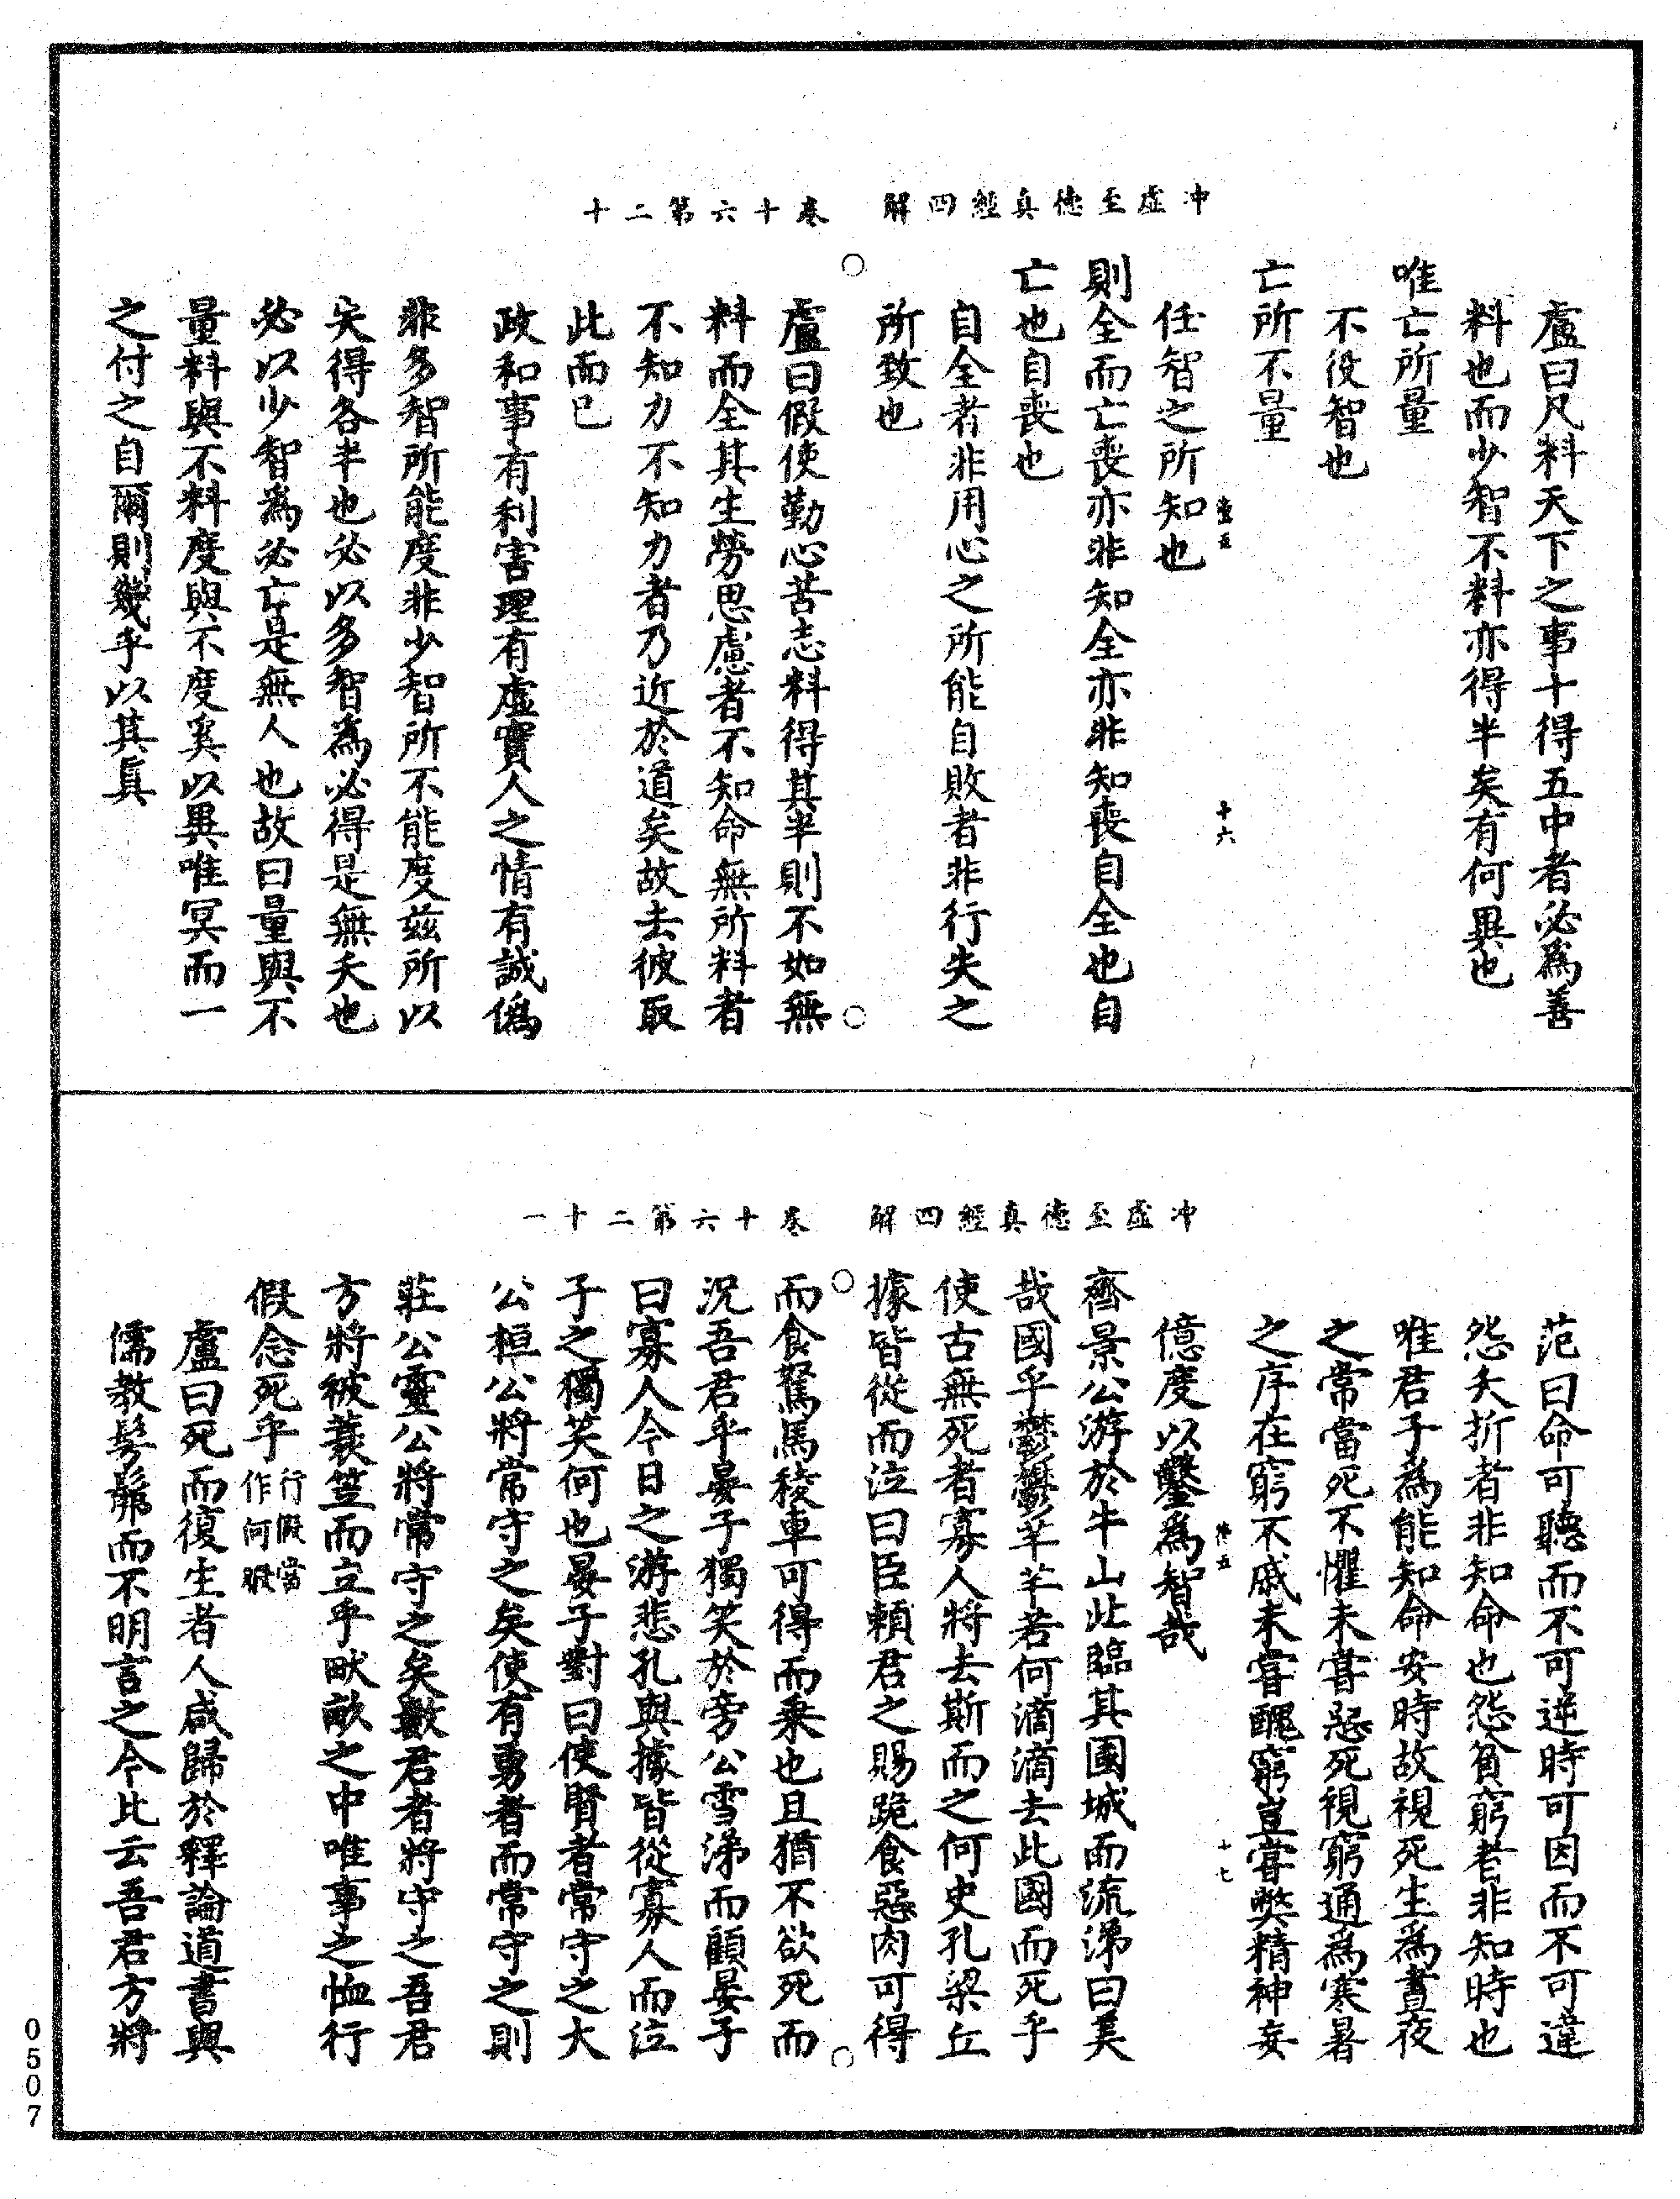 冲虛至德真經四解　卷十六第二十
盧曰凡料天下之事十得五中者必爲善
料也而少智不料亦得半矣有何異也
唯亡所量
不役智也
亡所不量
任智之所知也
十六
則全而亡喪亦非知全亦非知喪自全也自
亡也自喪也
自全者非用心之所能自敗者非行失之
所致也
盧曰假使勤心苦志料得其半則不如無
料而全其生勞思慮者不知命無所料者
不知力不知力者乃近於道矣故去彼取
此而已
政和事有利害理有虛實人之情有誠僞
非多智所能度非少智所不能度兹所以
矣得各半也必以多智爲必得是無夭也
必以少智爲必亡是無人也故曰量與不
量料與不料度與不度奚以異唯冥而一
之付之自爾則幾乎以其真
冲虛至德真經四解　卷十六第二十一
范曰命可聽而不可逆時可因而不可違
怨夭折者非知命也怨貧窮者非知時也
唯君子爲能知命安時故視死生爲晝夜
之常當死不懼未嘗惡死視窮通爲寒暑
之序在窮不戚未嘗醜窮豈嘗弊精神妄
億度以鑿爲智哉
十七
齊景公游於牛山北臨其國城而流涕曰美
哉國乎鬱鬱芊芊若何滴滴去此國而死乎
使古無死者寡人將去斯而之何史孔梁丘
據皆從而泣曰臣賴君之賜跪食惡肉可得
而食駑馬稜車可得而乘也且猶不欲死而
況吾君乎晏子獨笑於旁公雪涕而顧晏子
曰寡人今日之游悲孔與據皆從寡人而泣
子之獨笑何也晏子對曰使賢者常守之大
公桓公將常守之矣使有勇者而常守之則
莊公靈公將常守之矣數君者將守之吾君
方將被蓑笠而立乎畎畝之中唯事之恤行
假念死乎行假當作何暇
盧曰死而復生者人咸歸於釋論道書與
儒教髣髴而不明言之今此云吾君方將
0507